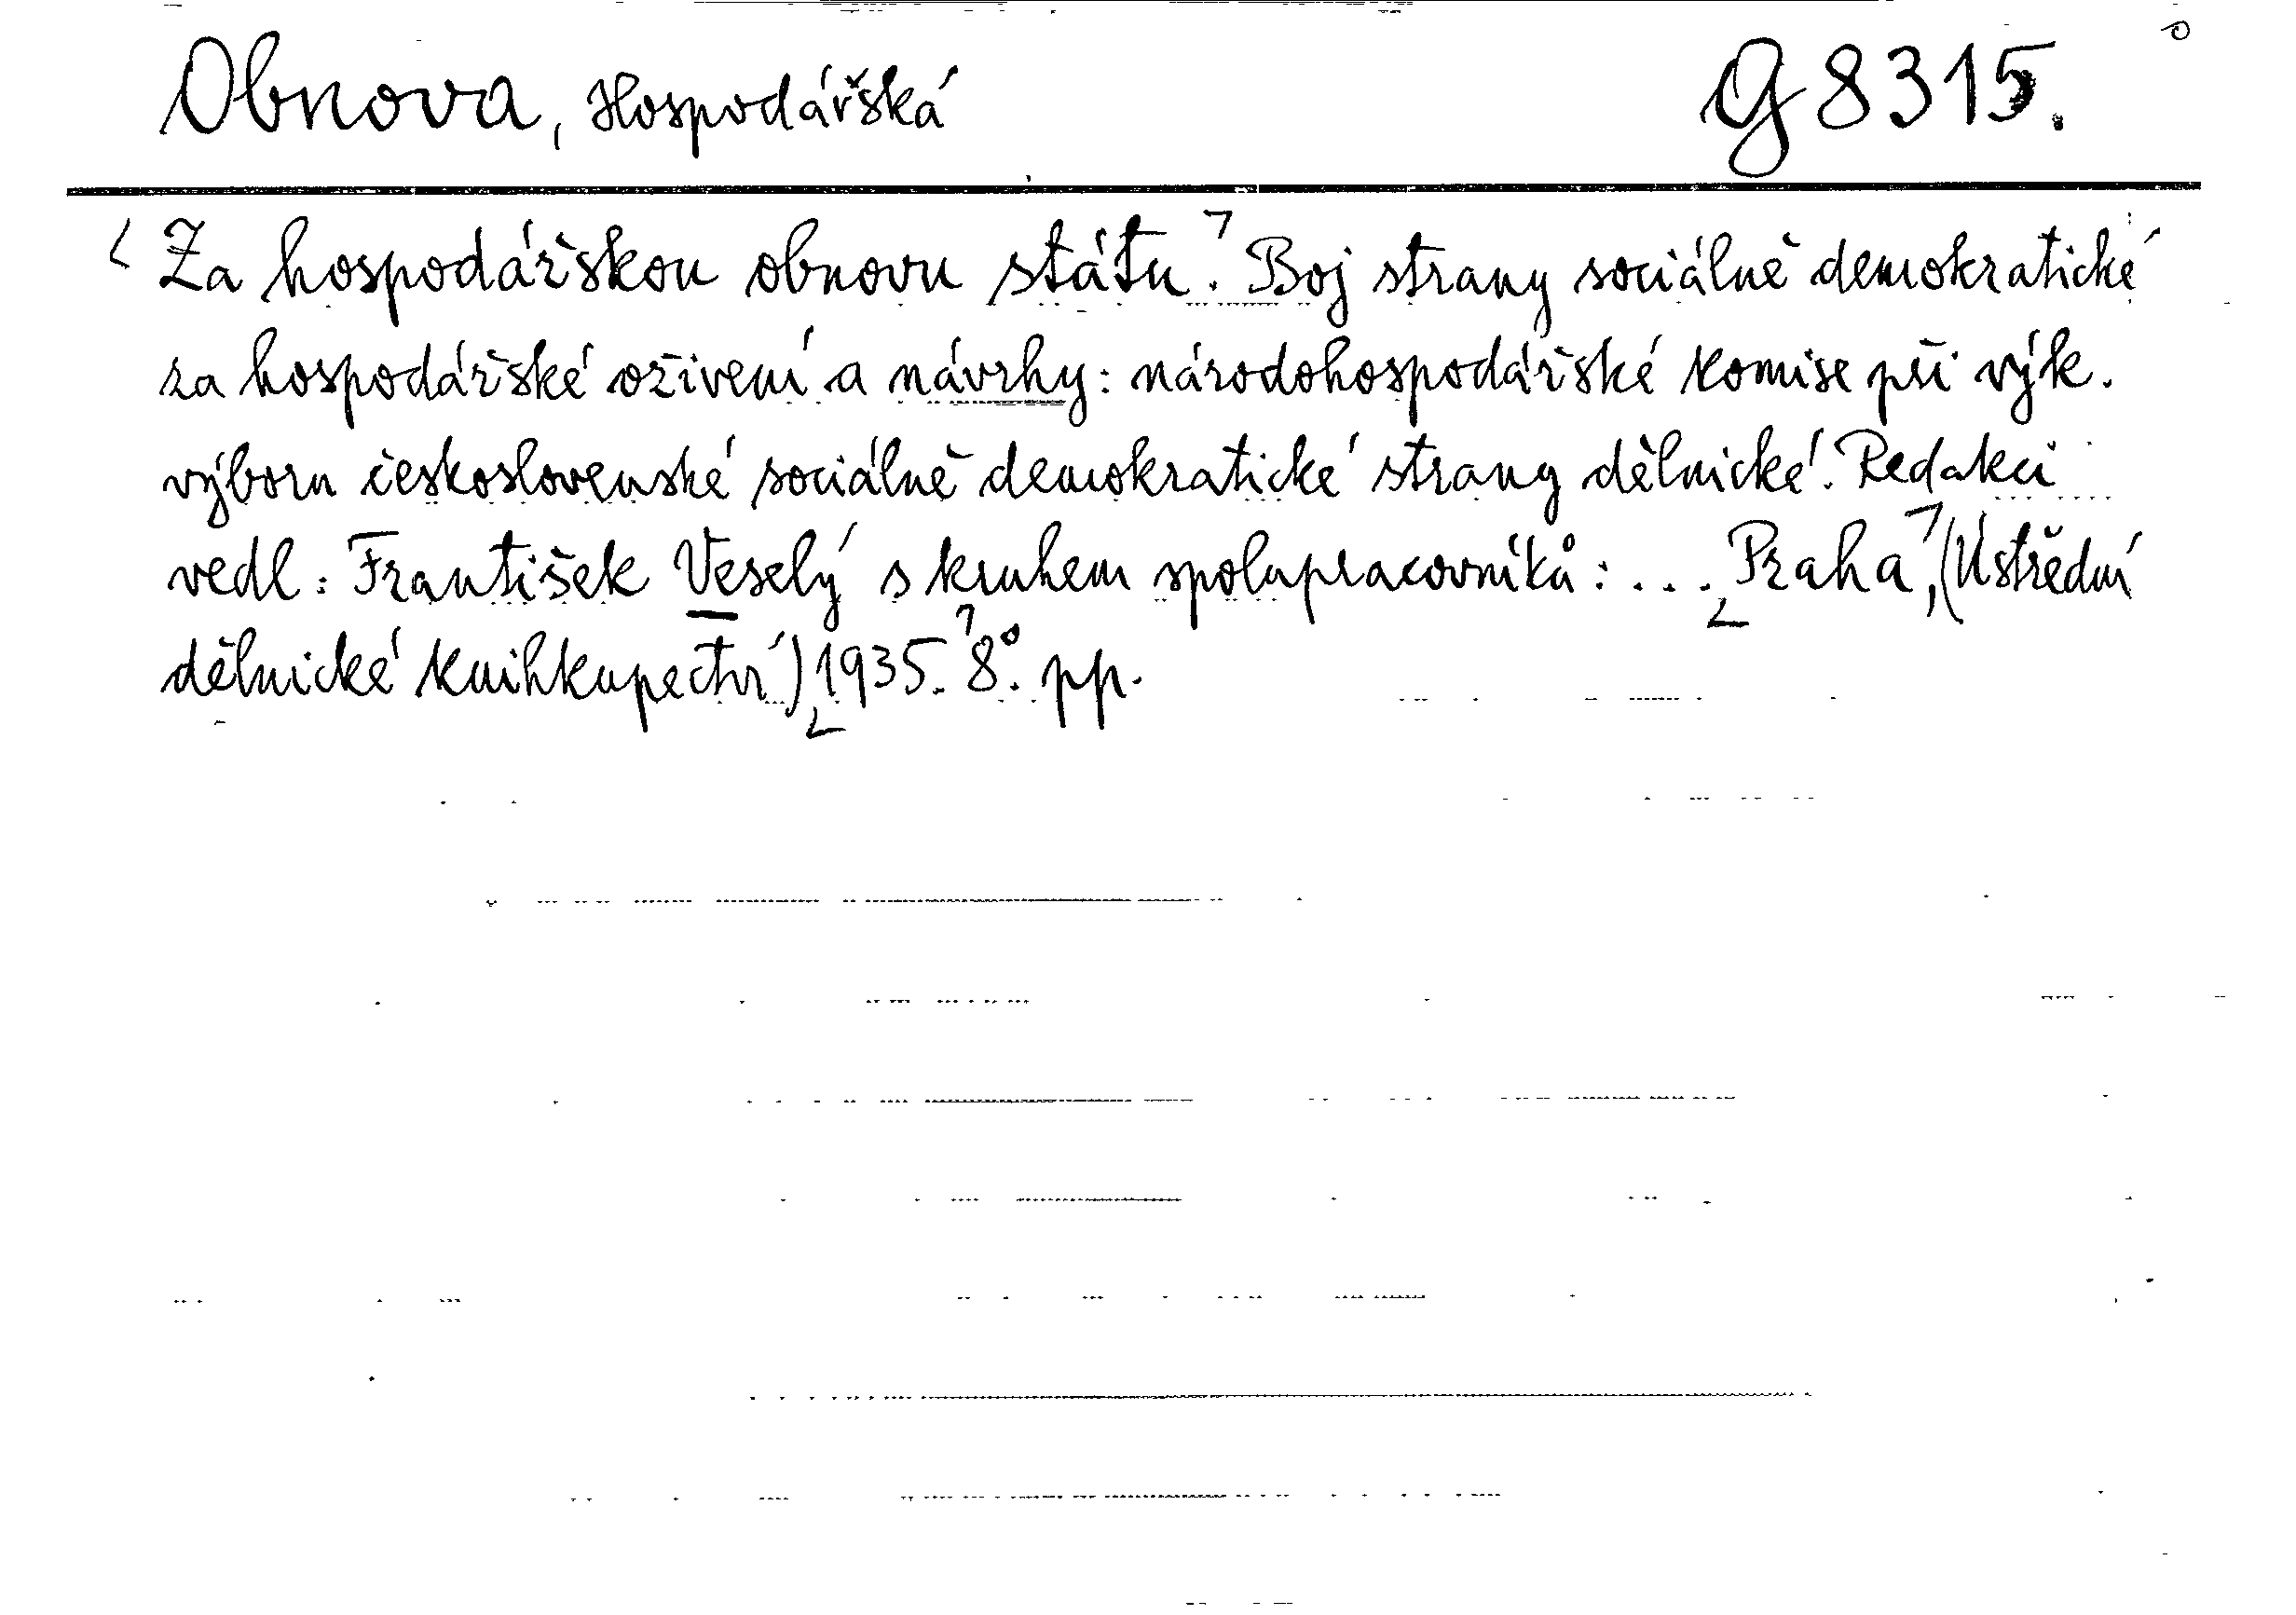 Obnova, Hospodářšká G 8315.
Za hospodářškou obnovu státu. Boj strany sociálně demokratické
za hospodářšké oživení a návrhy: národohospodářšké komise při výk.
výboru československé sociálně demokratické strany dělnické. Redakci
vedl: František Veselý s kruhem spolupracovníků: ... Praha, (Ústřední
dělnické knihkupectví) 1935. 8°. pp.